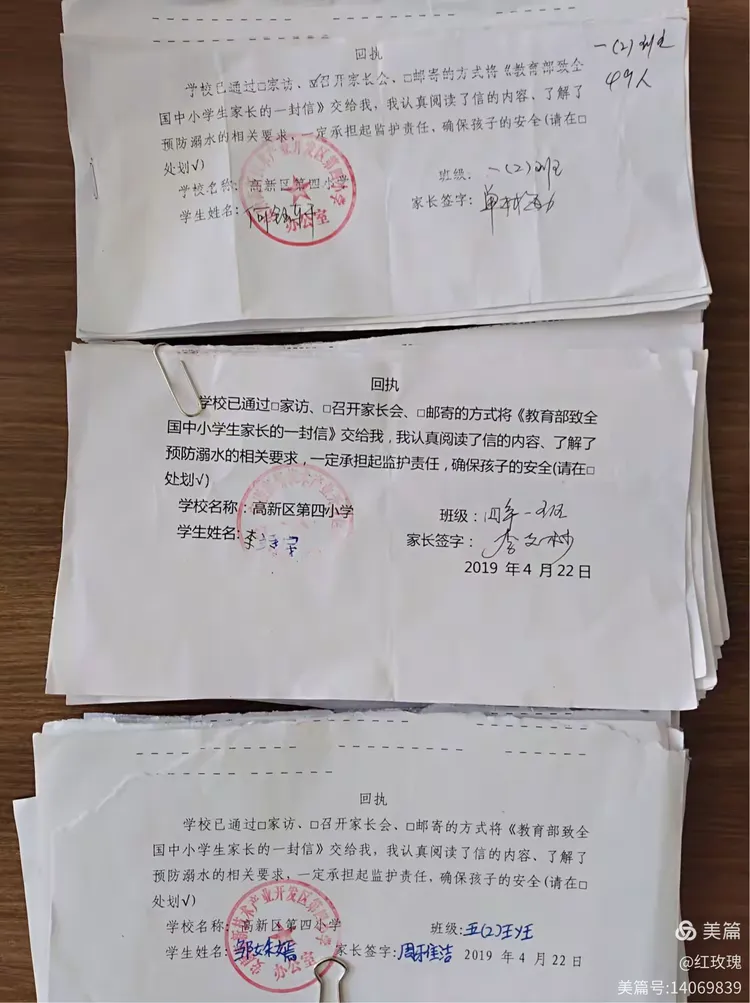 一(2)班
49人
回执
学校已通过□家访、☑召开家长会、□邮寄的方式将《教育部致全
国中小学生家长的一封信》交给我，我认真阅读了信的内容、了解了
预防溺水的相关要求，一定承担起监护责任，确保孩子的安全(请在□
处划√)
学校名称：高新区第四小学
班级：一(2)班
学生姓名：
家长签字：
办公室
回执
学校已通过□家访、□召开家长会、□邮寄的方式将《教育部致全
国中小学生家长的一封信》交给我，我认真阅读了信的内容、了解了
预防溺水的相关要求，一定承担起监护责任，确保孩子的安全(请在□
处划√)
学校名称：高新区第四小学
班级：四年一班
学生姓名：李
家长签字：李文
2019 年 4 月 22 日
回执
学校已通过□家访、□召开家长会、□邮寄的方式将《教育部致全
国中小学生家长的一封信》交给我，我认真阅读了信的内容、了解了
预防溺水的相关要求，一定承担起监护责任，确保孩子的安全(请在□
处划√)
学校名称：高新区第四小学
班级：五(2)班
学生姓名：邹 家长签字：周佳洁 2019 年 4 月 22 日
办公室
美篇
@红玫瑰
美篇号:14069839